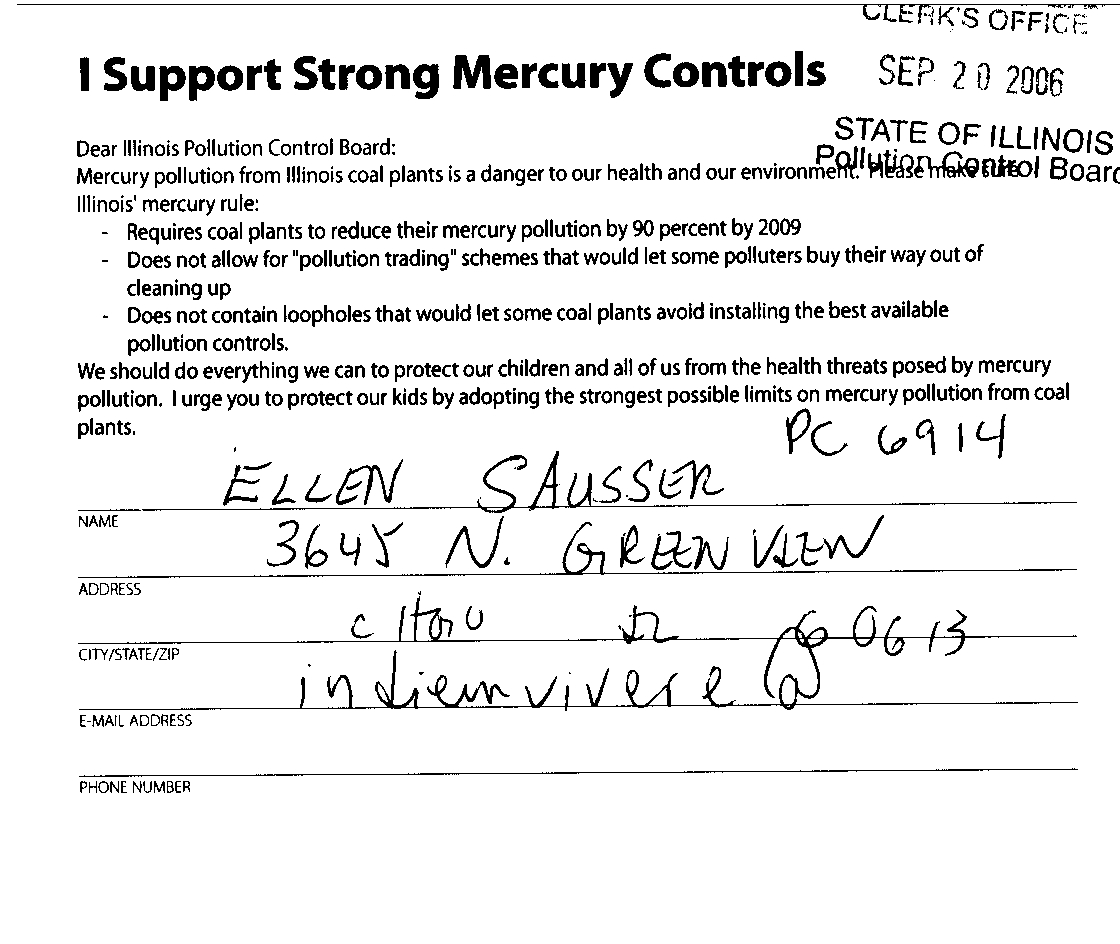 CLERK'S OFFICE
I Support Strong Mercury Controls
SEP 20 2006
STATE OF ILLINOIS
Pollution Control Board
Dear Illinois Pollution Control Board:
Mercury pollution from Illinois coal plants is a danger to our health and our environment. Please make sure
Illinois' mercury rule:
- Requires coal plants to reduce their mercury pollution by 90 percent by 2009
- Does not allow for "pollution trading" schemes that would let some polluters buy their way out of
cleaning up
- Does not contain loopholes that would let some coal plants avoid installing the best available
pollution controls.
We should do everything we can to protect our children and all of us from the health threats posed by mercury
pollution. I urge you to protect our kids by adopting the strongest possible limits on mercury pollution from coal
plants.
PC 6914
ELLEN SAUSSER
NAME
3645 N. GREENVIEW
ADDRESS
IL 60613
CITY/STATE/ZIP
E-MAIL ADDRESS
PHONE NUMBER